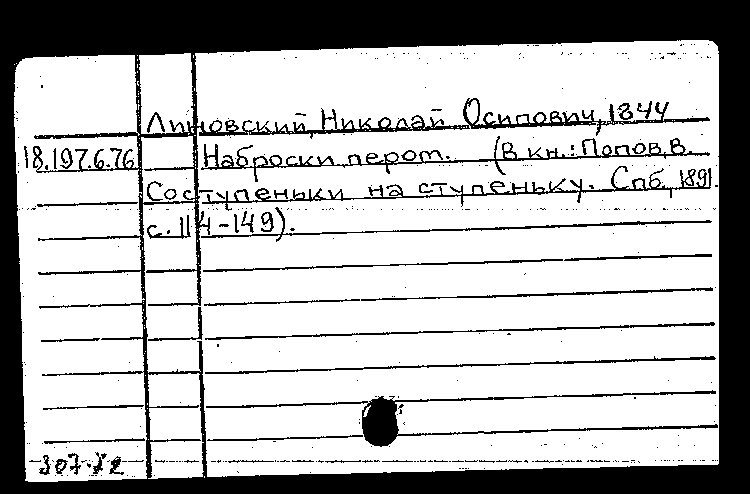 Линовский, Николай Осипович, 1844
18.197.6.76 Наброски пером. (В кн.: Попов, В.
Со ступеньки на ступеньку. Спб, 1891.
с. 114-149).
307-72